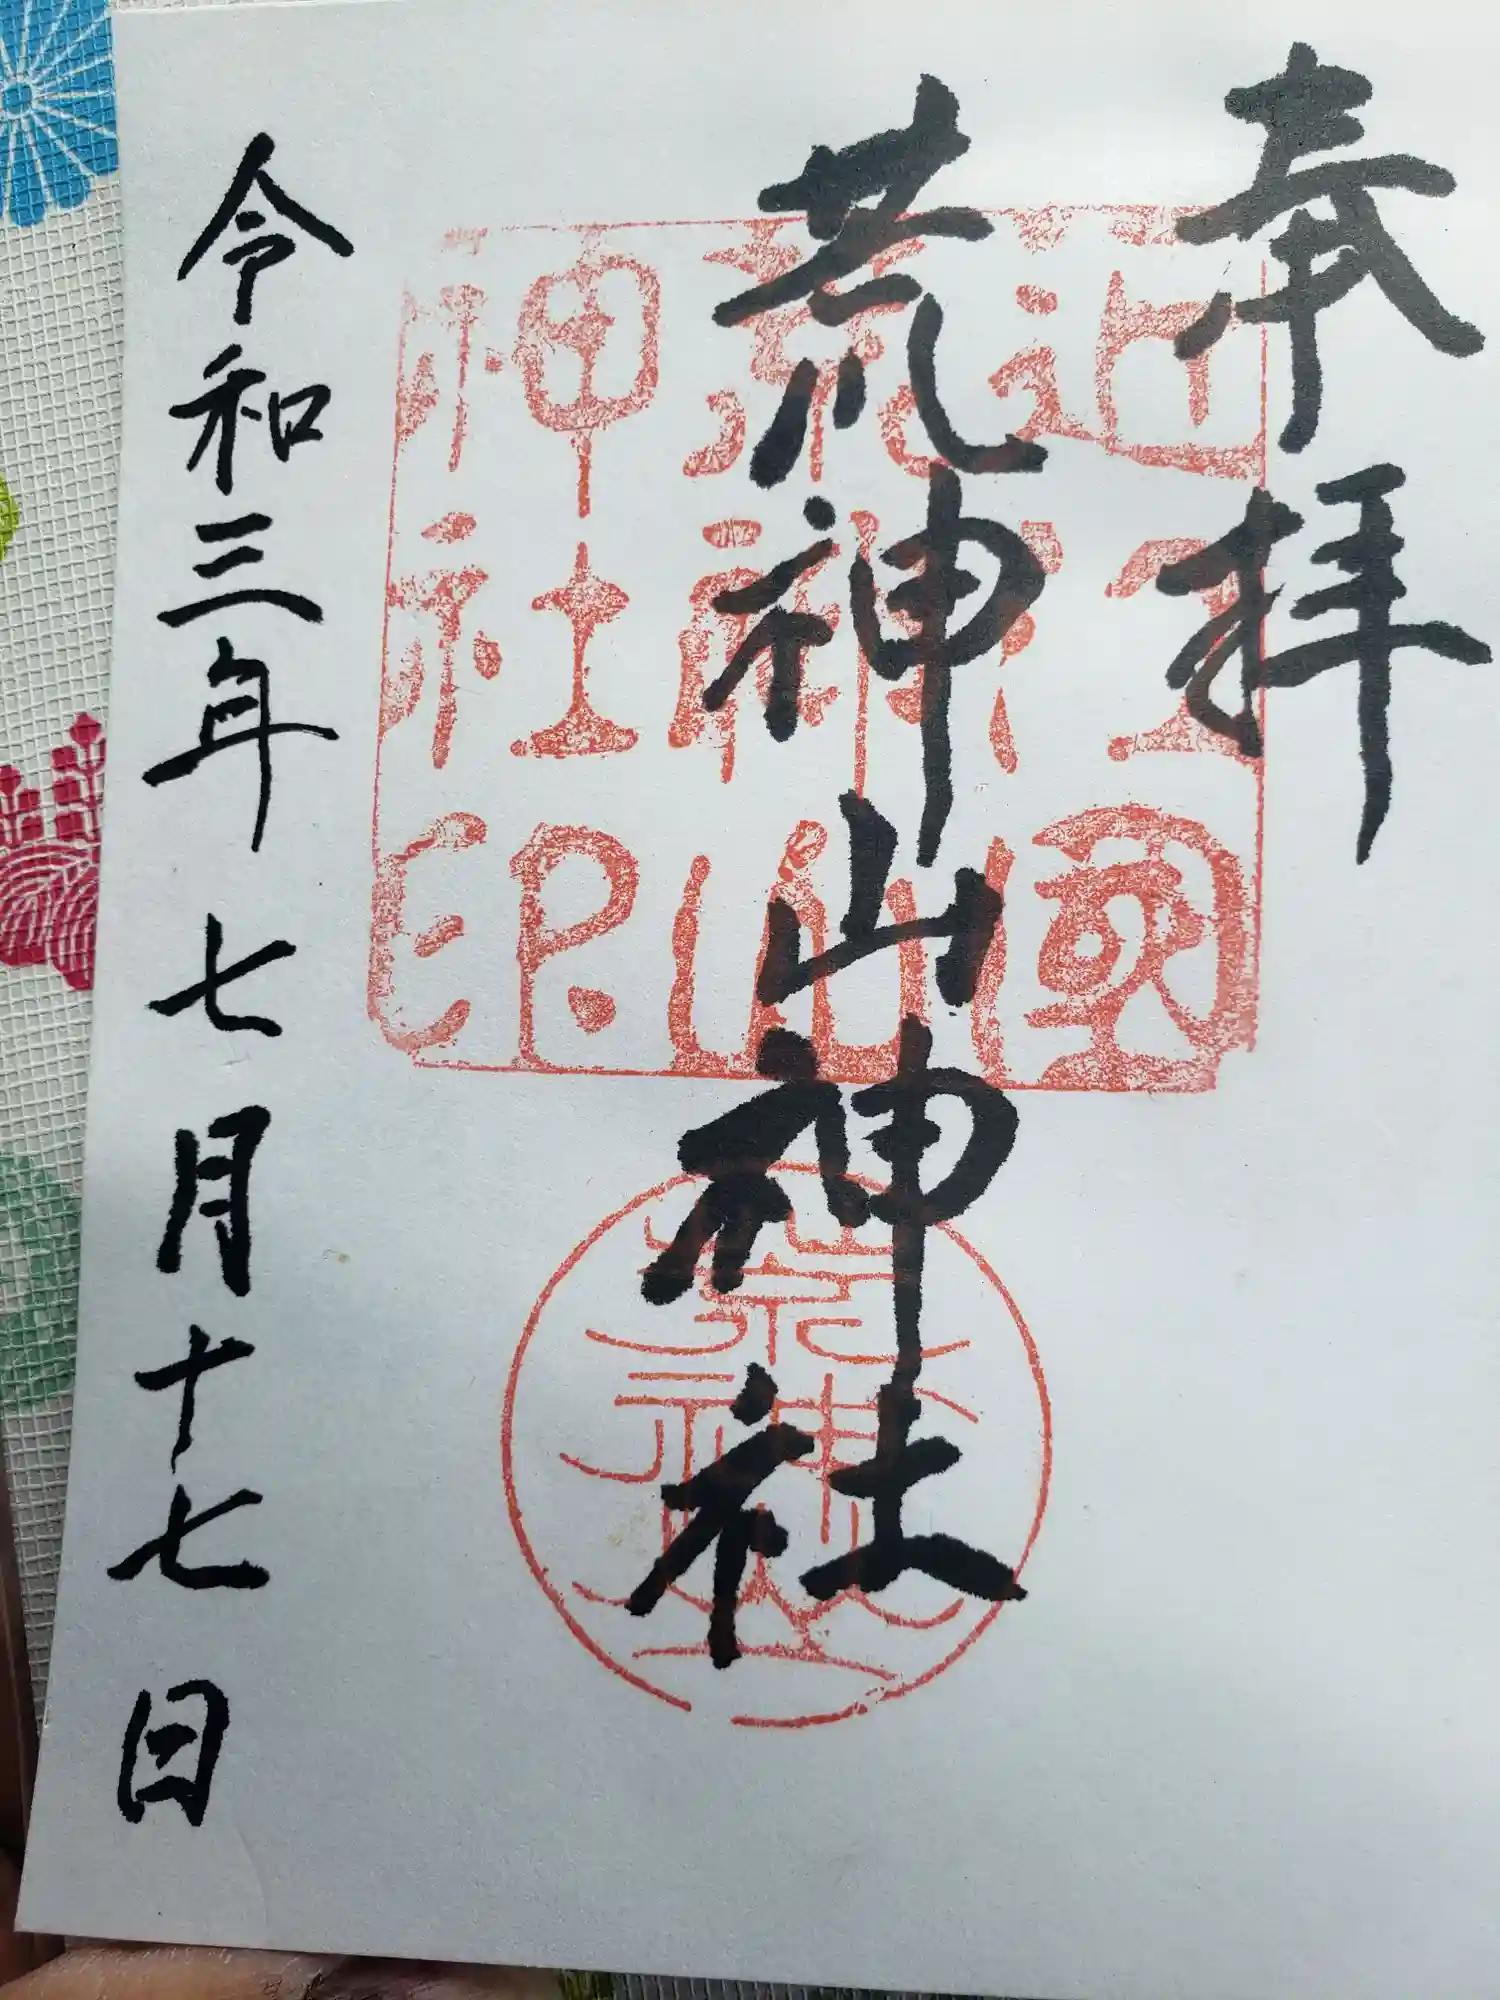 奉拝
荒神山神社
令和三年七月十七日
近江國
荒神山
神社印